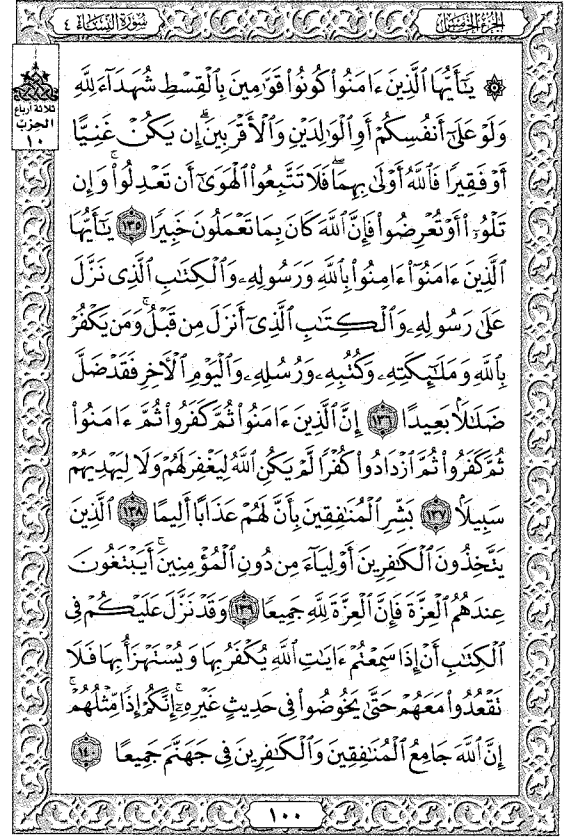 الجزء الخامس
سورة النساء ٤
ثلاثة أرباع
الحزب
١٠
۞ يَٰٓأَيُّهَا ٱلَّذِينَ ءَامَنُوا۟ كُونُوا۟ قَوَّٰمِينَ بِٱلْقِسْطِ شُهَدَآءَ لِلَّهِ
وَلَوْ عَلَىٰٓ أَنفُسِكُمْ أَوِ ٱلْوَٰلِدَيْنِ وَٱلْأَقْرَبِينَ ۚ إِن يَكُنْ غَنِيًّا
أَوْ فَقِيرًا فَٱللَّهُ أَوْلَىٰ بِهِمَا ۖ فَلَا تَتَّبِعُوا۟ ٱلْهَوَىٰٓ أَن تَعْدِلُوا۟ ۚ وَإِن
تَلْوُۥٓا۟ أَوْ تُعْرِضُوا۟ فَإِنَّ ٱللَّهَ كَانَ بِمَا تَعْمَلُونَ خَبِيرًا ١٣٥ يَٰٓأَيُّهَا
ٱلَّذِينَ ءَامَنُوٓا۟ ءَامِنُوا۟ بِٱللَّهِ وَرَسُولِهِۦ وَٱلْكِتَٰبِ ٱلَّذِى نَزَّلَ
عَلَىٰ رَسُولِهِۦ وَٱلْكِتَٰبِ ٱلَّذِىٓ أَنزَلَ مِن قَبْلُ ۚ وَمَن يَكْفُرْ
بِٱللَّهِ وَمَلَٰٓئِكَتِهِۦ وَكُتُبِهِۦ وَرُسُلِهِۦ وَٱلْيَوْمِ ٱلْءَاخِرِ فَقَدْ ضَلَّ
ضَلَٰلًۢا بَعِيدًا ١٣٦ إِنَّ ٱلَّذِينَ ءَامَنُوا۟ ثُمَّ كَفَرُوا۟ ثُمَّ ءَامَنُوا۟
ثُمَّ كَفَرُوا۟ ثُمَّ ٱزْدَادُوا۟ كُفْرًا لَّمْ يَكُنِ ٱللَّهُ لِيَغْفِرَ لَهُمْ وَلَا لِيَهْدِيَهُمْ
سَبِيلًۢا ١٣٧ بَشِّرِ ٱلْمُنَٰفِقِينَ بِأَنَّ لَهُمْ عَذَابًا أَلِيمًا ١٣٨ ٱلَّذِينَ
يَتَّخِذُونَ ٱلْكَٰفِرِينَ أَوْلِيَآءَ مِن دُونِ ٱلْمُؤْمِنِينَ ۚ أَيَبْتَغُونَ
عِندَهُمُ ٱلْعِزَّةَ فَإِنَّ ٱلْعِزَّةَ لِلَّهِ جَمِيعًا ١٣٩ وَقَدْ نَزَّلَ عَلَيْكُمْ فِى
ٱلْكِتَٰبِ أَنْ إِذَا سَمِعْتُمْ ءَايَٰتِ ٱللَّهِ يُكْفَرُ بِهَا وَيُسْتَهْزَأُ بِهَا فَلَا
تَقْعُدُوا۟ مَعَهُمْ حَتَّىٰ يَخُوضُوا۟ فِى حَدِيثٍ غَيْرِهِۦٓ ۚ إِنَّكُمْ إِذًا مِّثْلُهُمْ ۗ
إِنَّ ٱللَّهَ جَامِعُ ٱلْمُنَٰفِقِينَ وَٱلْكَٰفِرِينَ فِى جَهَنَّمَ جَمِيعًا ١٤٠
١٠٠